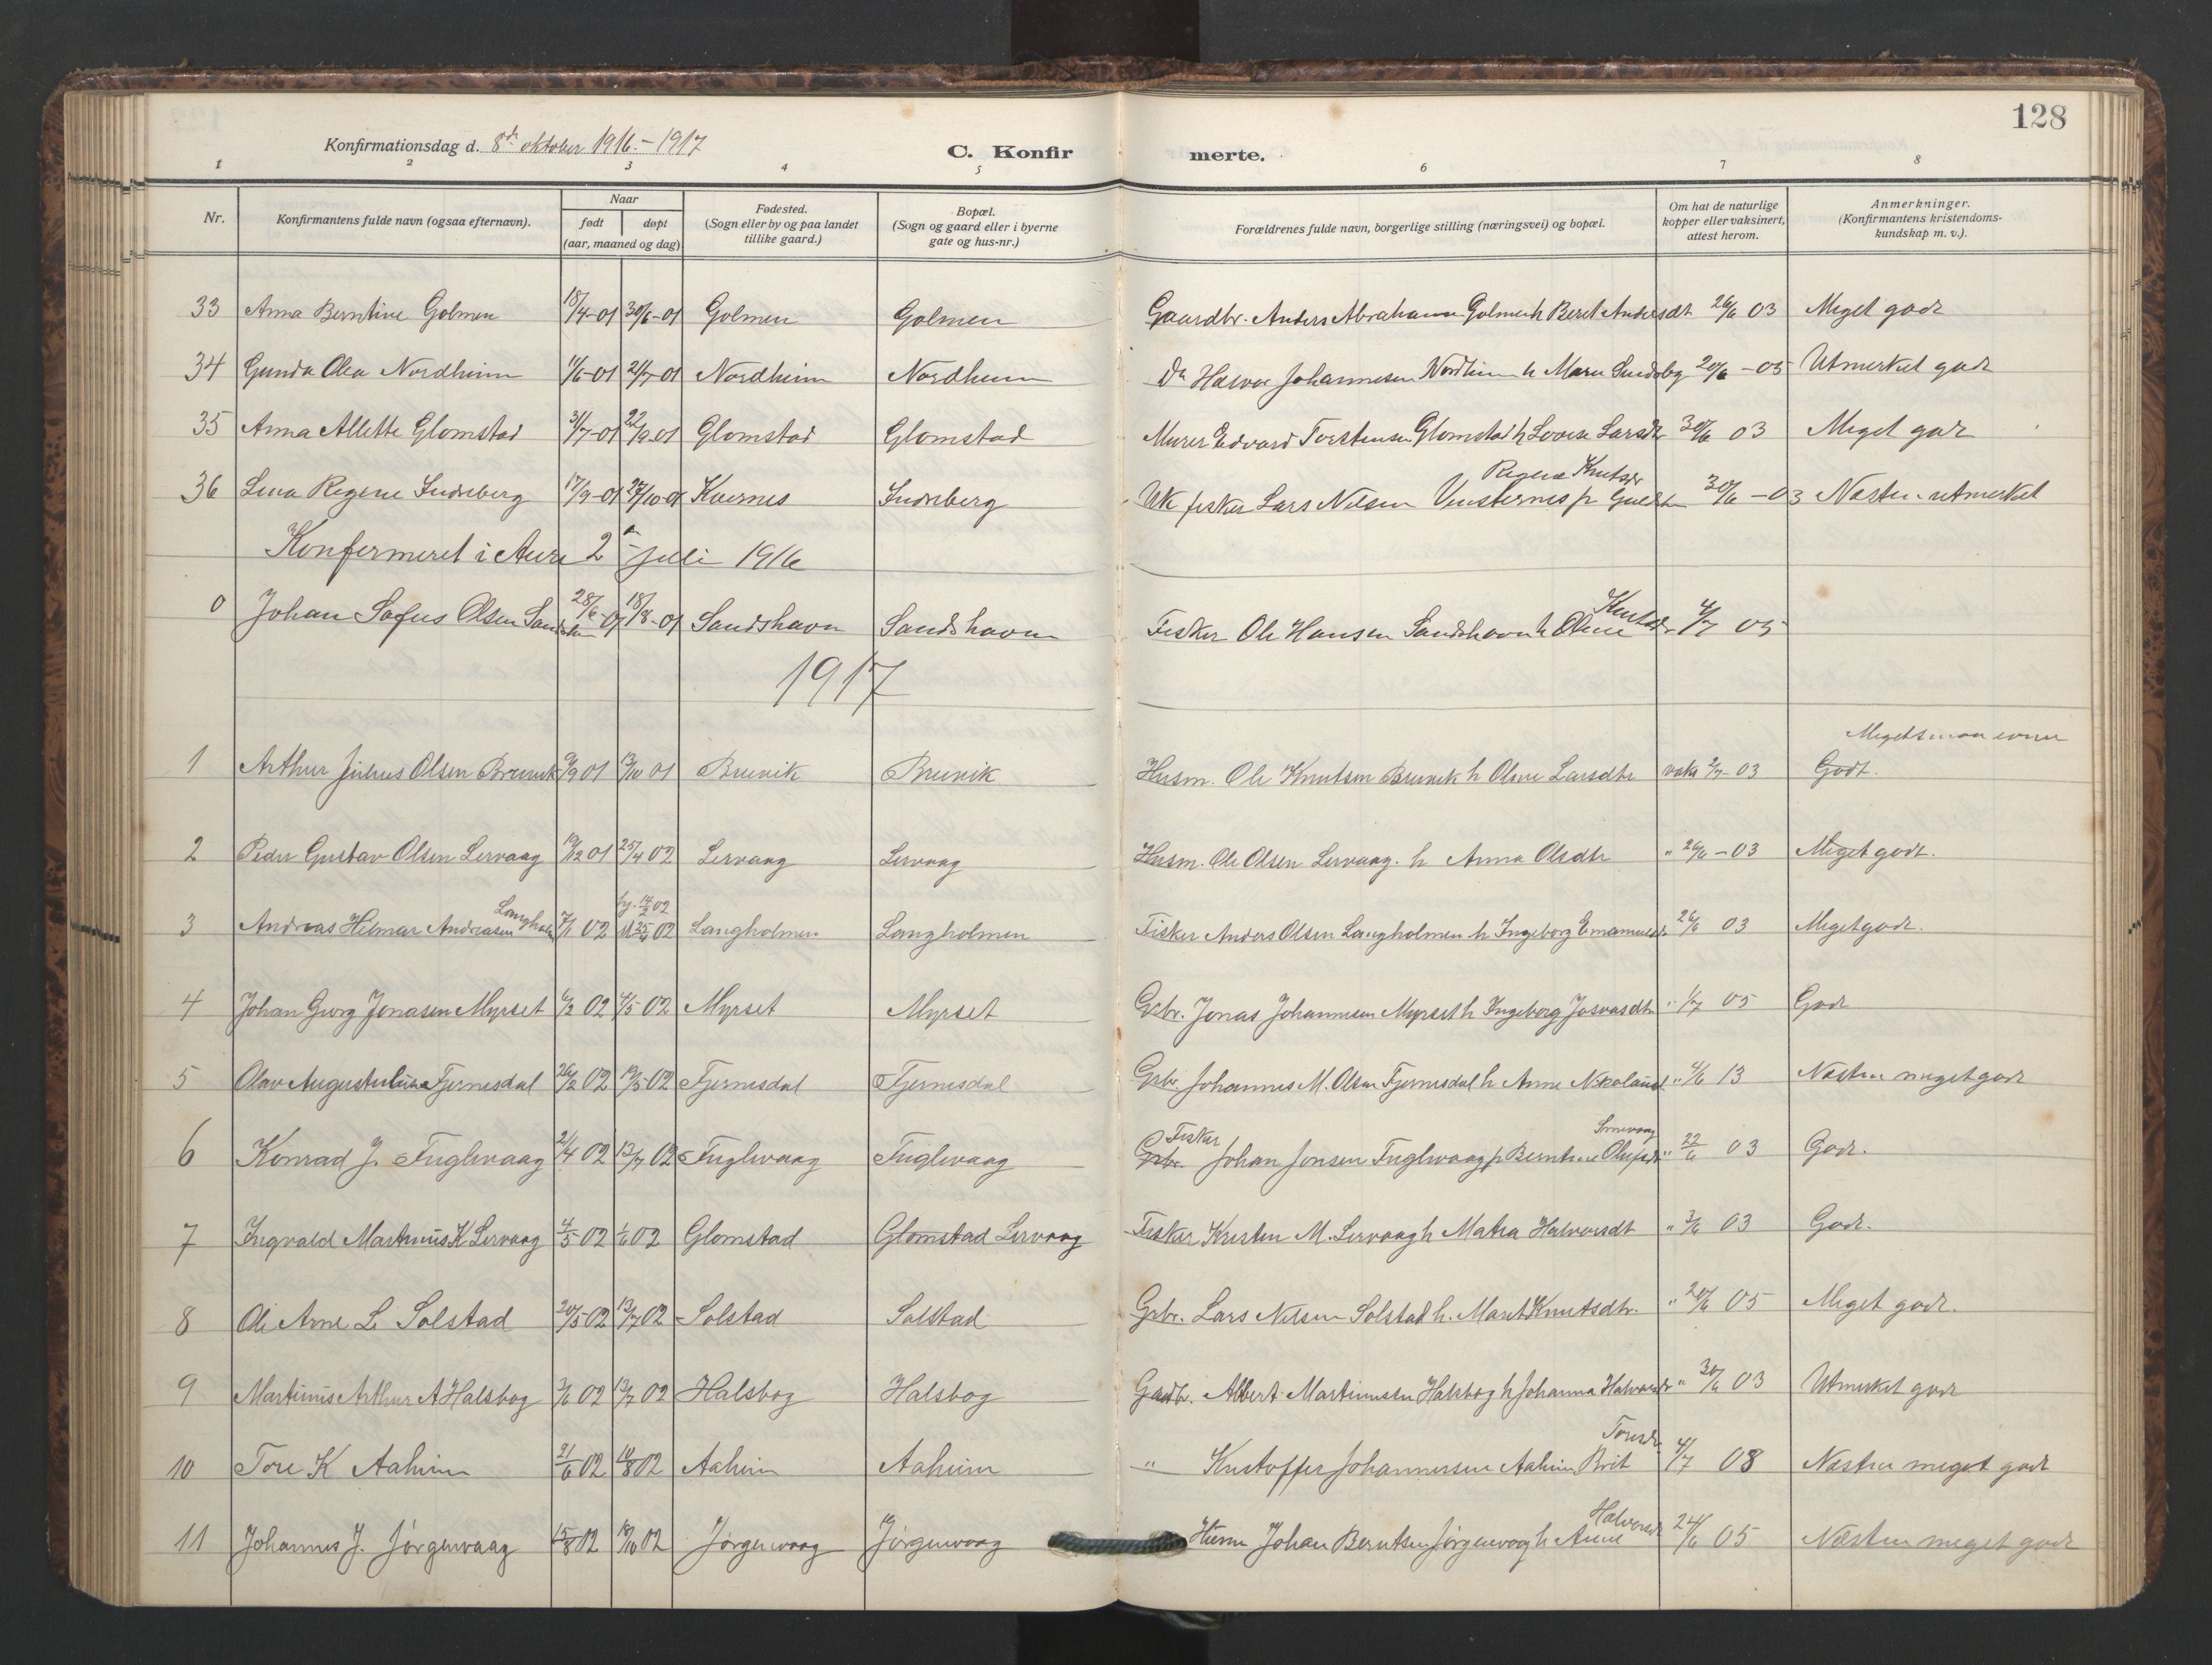 128
Konfirmationsdag d. 8de oktober 1916.-1917
C. Konfirmerte.
1 2 3 4 5 6 7 8
Nr. Konfirmantens fulde navn (ogsaa efternavn). Naar født døpt (aar, maaned og dag) Fødested. (Sogn eller by og paa landet tillike gaard.) Bopæl. (Sogn og gaard eller i byerne gate og hus-nr.) Forældrenes fulde navn, borgerlige stilling (næringsvei) og bopæl. Om hat de naturlige kopper eller vaksinert, attest herom. Anmerkninger. (Konfirmantens kristendoms-kundskap m. v.).
33 Anna Berntine Golmen 18/4-01 30/6-01 Golmen Golmen Gaardbr. Anders Abrahamsen Golmen h Beret Andersdt 26/6 03 Meget godt
34 Gunda Olea Nordheim 11/6-01 21/7-01 Nordheim Nordheim Do Halvor Johannesen Nordheim h Maren 20/6-05 Utmerket godt
35 Anna Allette Glomstad 31/7-01 22/9-01 Glomstad Glomstad Murer Edvard Torstensen Glomstad h Lovise Larsdt 30/6 03 Meget godt
36 Lina Regine Indreberg 17/9-01 27/10-01 Kvernes Indreberg Uk fisker Lars Nilsen Vinsternes p Regine Knutsdr 30/6-03 Næsten utmerket
Konfermeret i Aure 2den juli 1916
0 Johan Sofus Olsen Sandshavn 28/6-01 18/8-01 Sandshavn Sandshavn Fisker Ole Hansen Sandshavn h Oline Knutsdr 4/7 05
1917
1 Arthur Julius Olsen Brunvik 9/9 01 13/10 01 Brunvik Brunvik Husm. Ole Knutsen Brunvik h Oline Larsdtr vaks 2/7-03 Meget smaa evner Godt.
2 Peder Gustav Olsen Lervaag 19/12 01 25/4 02 Lervaag Lervaag Husm. Ole Olsen Lervaag. h Anna Olsdtr " 26/6-03 Meget godt.
3 Andreas Hilmar Andreasen Langholm 7/1 02 hj. 14/2 02 st 25/4 02 Langholmen Langholmen Fisker Anders Olsen Langholmen h Ingeborg Emanuelsdr " 26/6 03 Meget godt.
4 Johan Georg Jonasen Myrset 6/2 02 4/5 02 Myrset Myrset Grbr. Jonas Johannesen Myrset h Ingeborg Josvasdtr " 1/7 05 Godt
5 Olav Augustinius Tjernesdal 26/2 02 19/5 02 Tjernesdal Tjernesdal Grbr. Johannes M. Olsen Tjernesdal h Anne Nikolaisd " 4/6 13 Næsten meget godt
6 Konrad J. Fuglevaag 21/4 02 13/7 02 Fuglevaag Fuglevaag Grbr. Fisker Johan Jonsen Fuglevaag p Berntine Olufsdt " 22/6 03 Godt.
7 Ingvald Martinius K Lervaag 4/5 02 1/6 02 Glomstad Glomstad Lervaag Fisker Kristen M. Lervaag h Matea Halvorsdt " 3/6 03 Godt.
8 Ole Arne L. Solstad 20/5 02 13/7 02 Solstad Solstad Grbr. Lars Nilsen Solstad h. Marit Knutsdtr. " 20/6 05 Meget godt.
9 Martinus Arthur A Halsbog 3/6 02 13/7 02 Halsbog Halsbog Gaardbr. Albert Martinussen Halsbog h Johanna Halvorsdr " 30/6 03 Utmerket godt
10 Tore K Aaheim 21/6 02 10/8 02 Aaheim Aaheim " Kristoffer Johannessen Aaheim Brit Toresdr 4/7 08 Næsten meget godt
11 Johannes J. Jørgenvaag 15/8 02 19/10 02 Jørgenvaag Jørgenvaag Husm Johan Berntsen Jørgenvaag h Anne Halvorsdr 24/6 05 Næsten meget godt